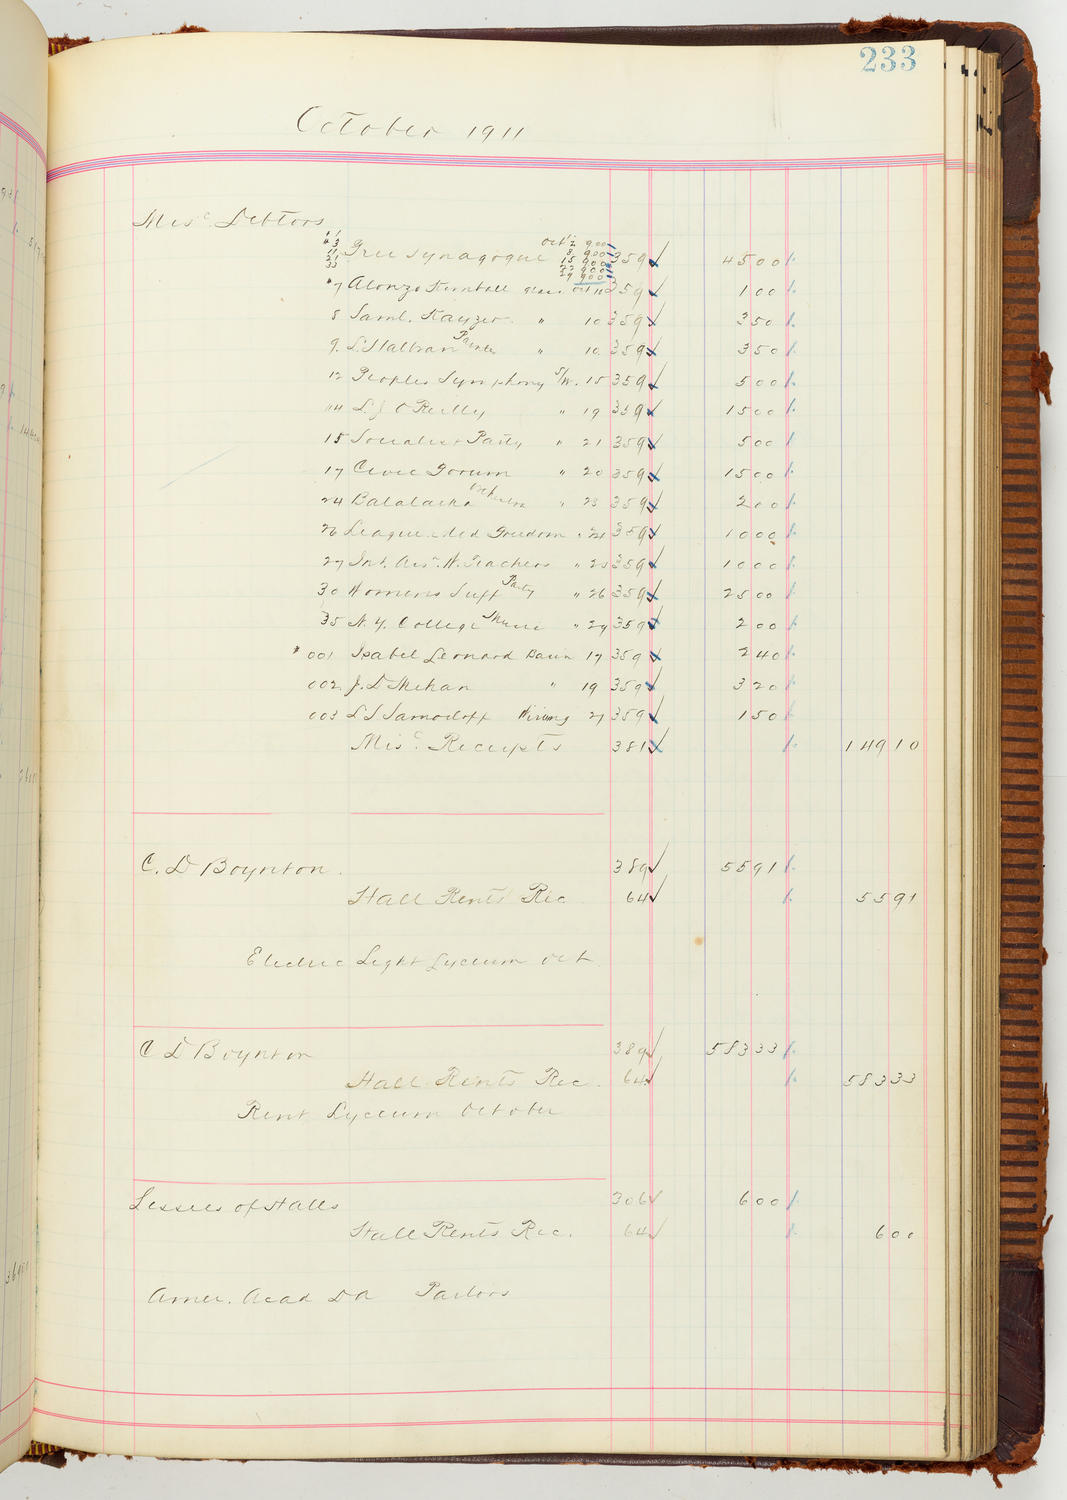 233
October 1911
Misc Debtors
Free Synagogue Oct 2 900 8 900 15 900 22 900 29 900 359 4500
7 Alonzo Kimball glass Oct 10 359 100
8 Saml. Kayzer " 10 359 350
9. L. Halbran Parker " 10. 359 350
12 Peoples Symphony S/W. 15 359 500
14 L. J O'Reilly " 19 359 1500
15 Socialist Party " 21 359 500
17 Civic Forum " 20 359 1500
24 Balalaika Orchestra " 23 359 200
26 League Med Freedom " 359 1000
27 Int. Ass. N. Teachers " 25 359 1000
30 Womens Suff Party " 26 359 2500
35 N. Y. College Music " 27 359 200
001 Isabel Leonard 17 359 240
002 J. D Mehan " 19 359 320
003 L S Samoiloff Wiring 21 359 150
Misc. Receipts 381 14910
C. D Boynton. 389 5591
Hall Rents Rec 64 5591
Electric Light Lyceum Oct
C D Boynton 389 58333
Hall Rents Rec. 64 58333
Rent Lyceum October
Lessees of Halls 306 600
Hall Rents Rec. 64 600
Amer. Acad D A Parlors